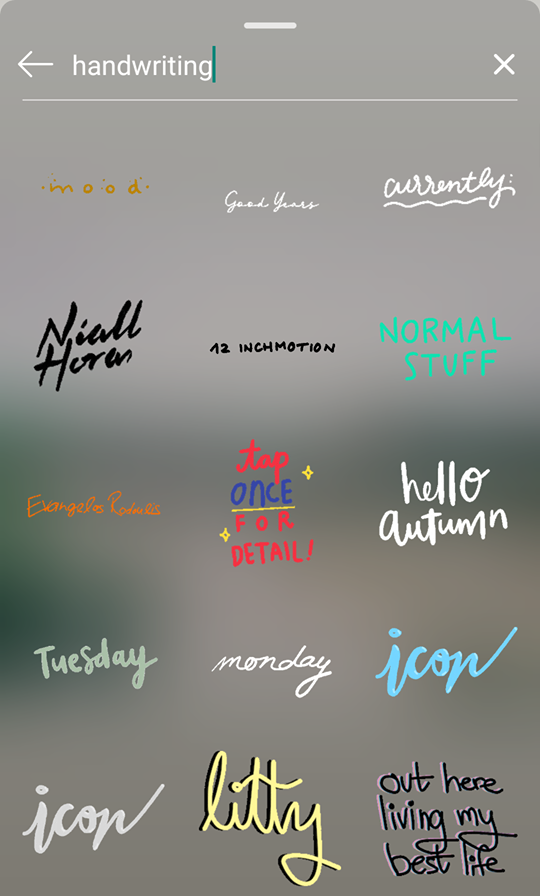 handwriting
mood
Good Years
currently:
Niall
Horan
12 INCHMOTION
NORMAL
STUFF
Evangelos
tap
ONCE
FOR
DETAIL!
hello
autumn
Tuesday
monday
icon
icon
litty
out here
living my
best life